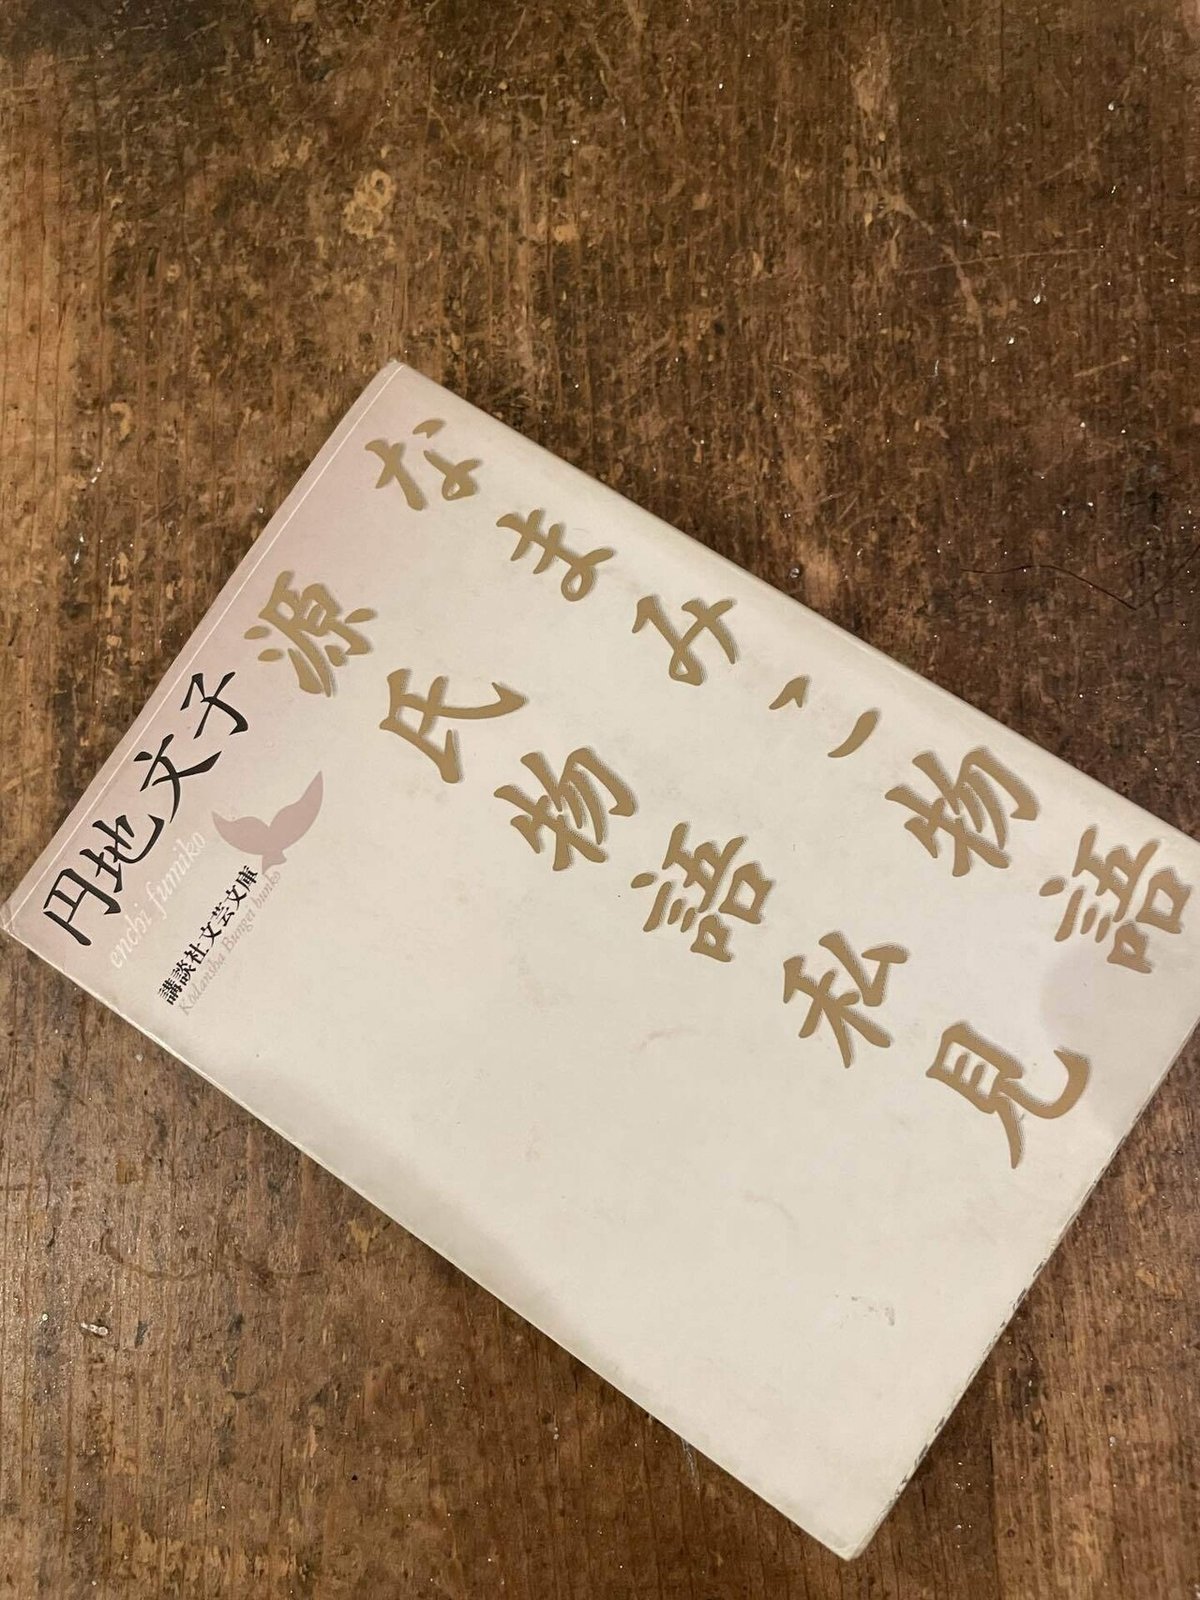 なまみこ物語
源氏物語私見
円地文子
enchi fumiko
講談社文芸文庫
Kodansha Bungei bunko